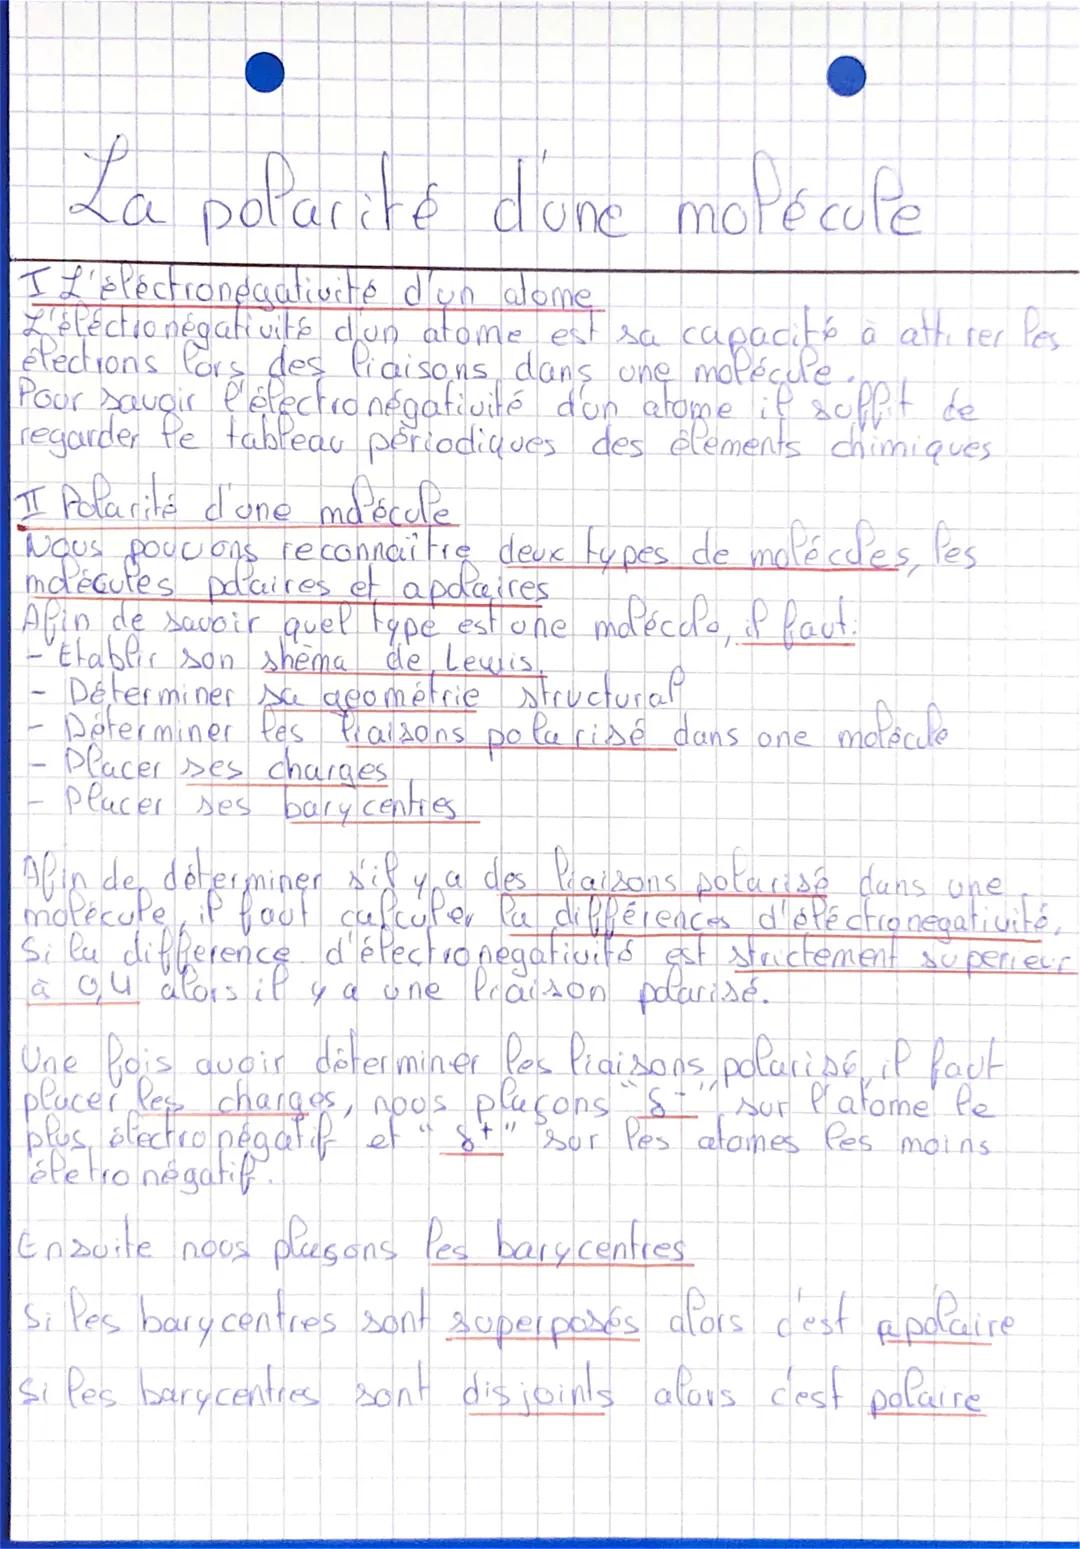 La polarité d'une molécule
I L'éléctronégativité d'un atome
L'éléctionégativité d'un atome est sa capacité à attirer les
électrons lors des liaisons dans une molécule.
Pour savoir l'électronégativité d'un atome il suffit de
regarder le tableau périodiques des élements chimiques
II Polarité d'une molécule
Nous pouvons reconnaître deux types de molécules, les
molécules polaires et apolaires
Afin de savoir quel type est une molécule, il faut:
- Etablir son shéma de Lewis.
- Déterminer sa géométrie structural
- Déterminer les liaisons polarisé dans une molécule
- Placer ses charges
- Placer ses barycentres
Afin de déterminer s'il y a des liaisons polarisé dans une
molécule, il faut calculer la différences d'éléctronegativité.
Si la difference d'électronegativité est strictement superieur
à 0,4 alors il y a une liaison polarisé.
Une fois avoir déterminer les liaisons polarisé, il faut
placer les charges, nous plaçons "δ-" sur l'atome le
plus électronégatif et "δ+" sur les atomes les moins
életronégatif.
Ensuite nous plaçons les barycentres
Si les barycentres sont superposés alors c'est apolaire
Si les barycentres sont disjoints alors c'est polaire